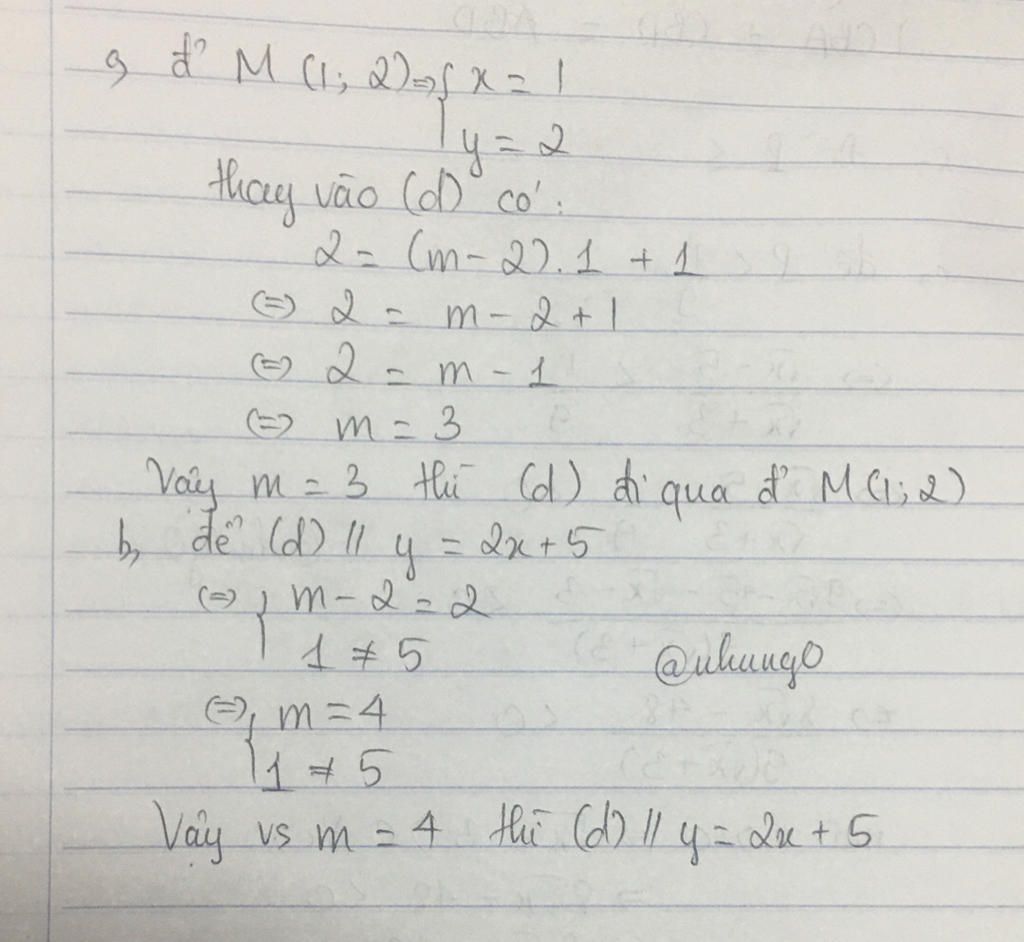 a, đ' M (1; 2) => { x = 1
y = 2
thay vào (d) có:
2 = (m - 2). 1 + 1
(=) 2 = m - 2 + 1
(=) 2 = m - 1
(=) m = 3
Vậy m = 3 thì (d) đi qua đ' M (1; 2)
b, để (d) // y = 2x + 5
(=) { m - 2 = 2
1 ≠ 5
@nhung0
(=) { m = 4
1 ≠ 5
Vậy vs m = 4 thì (d) // y = 2x + 5